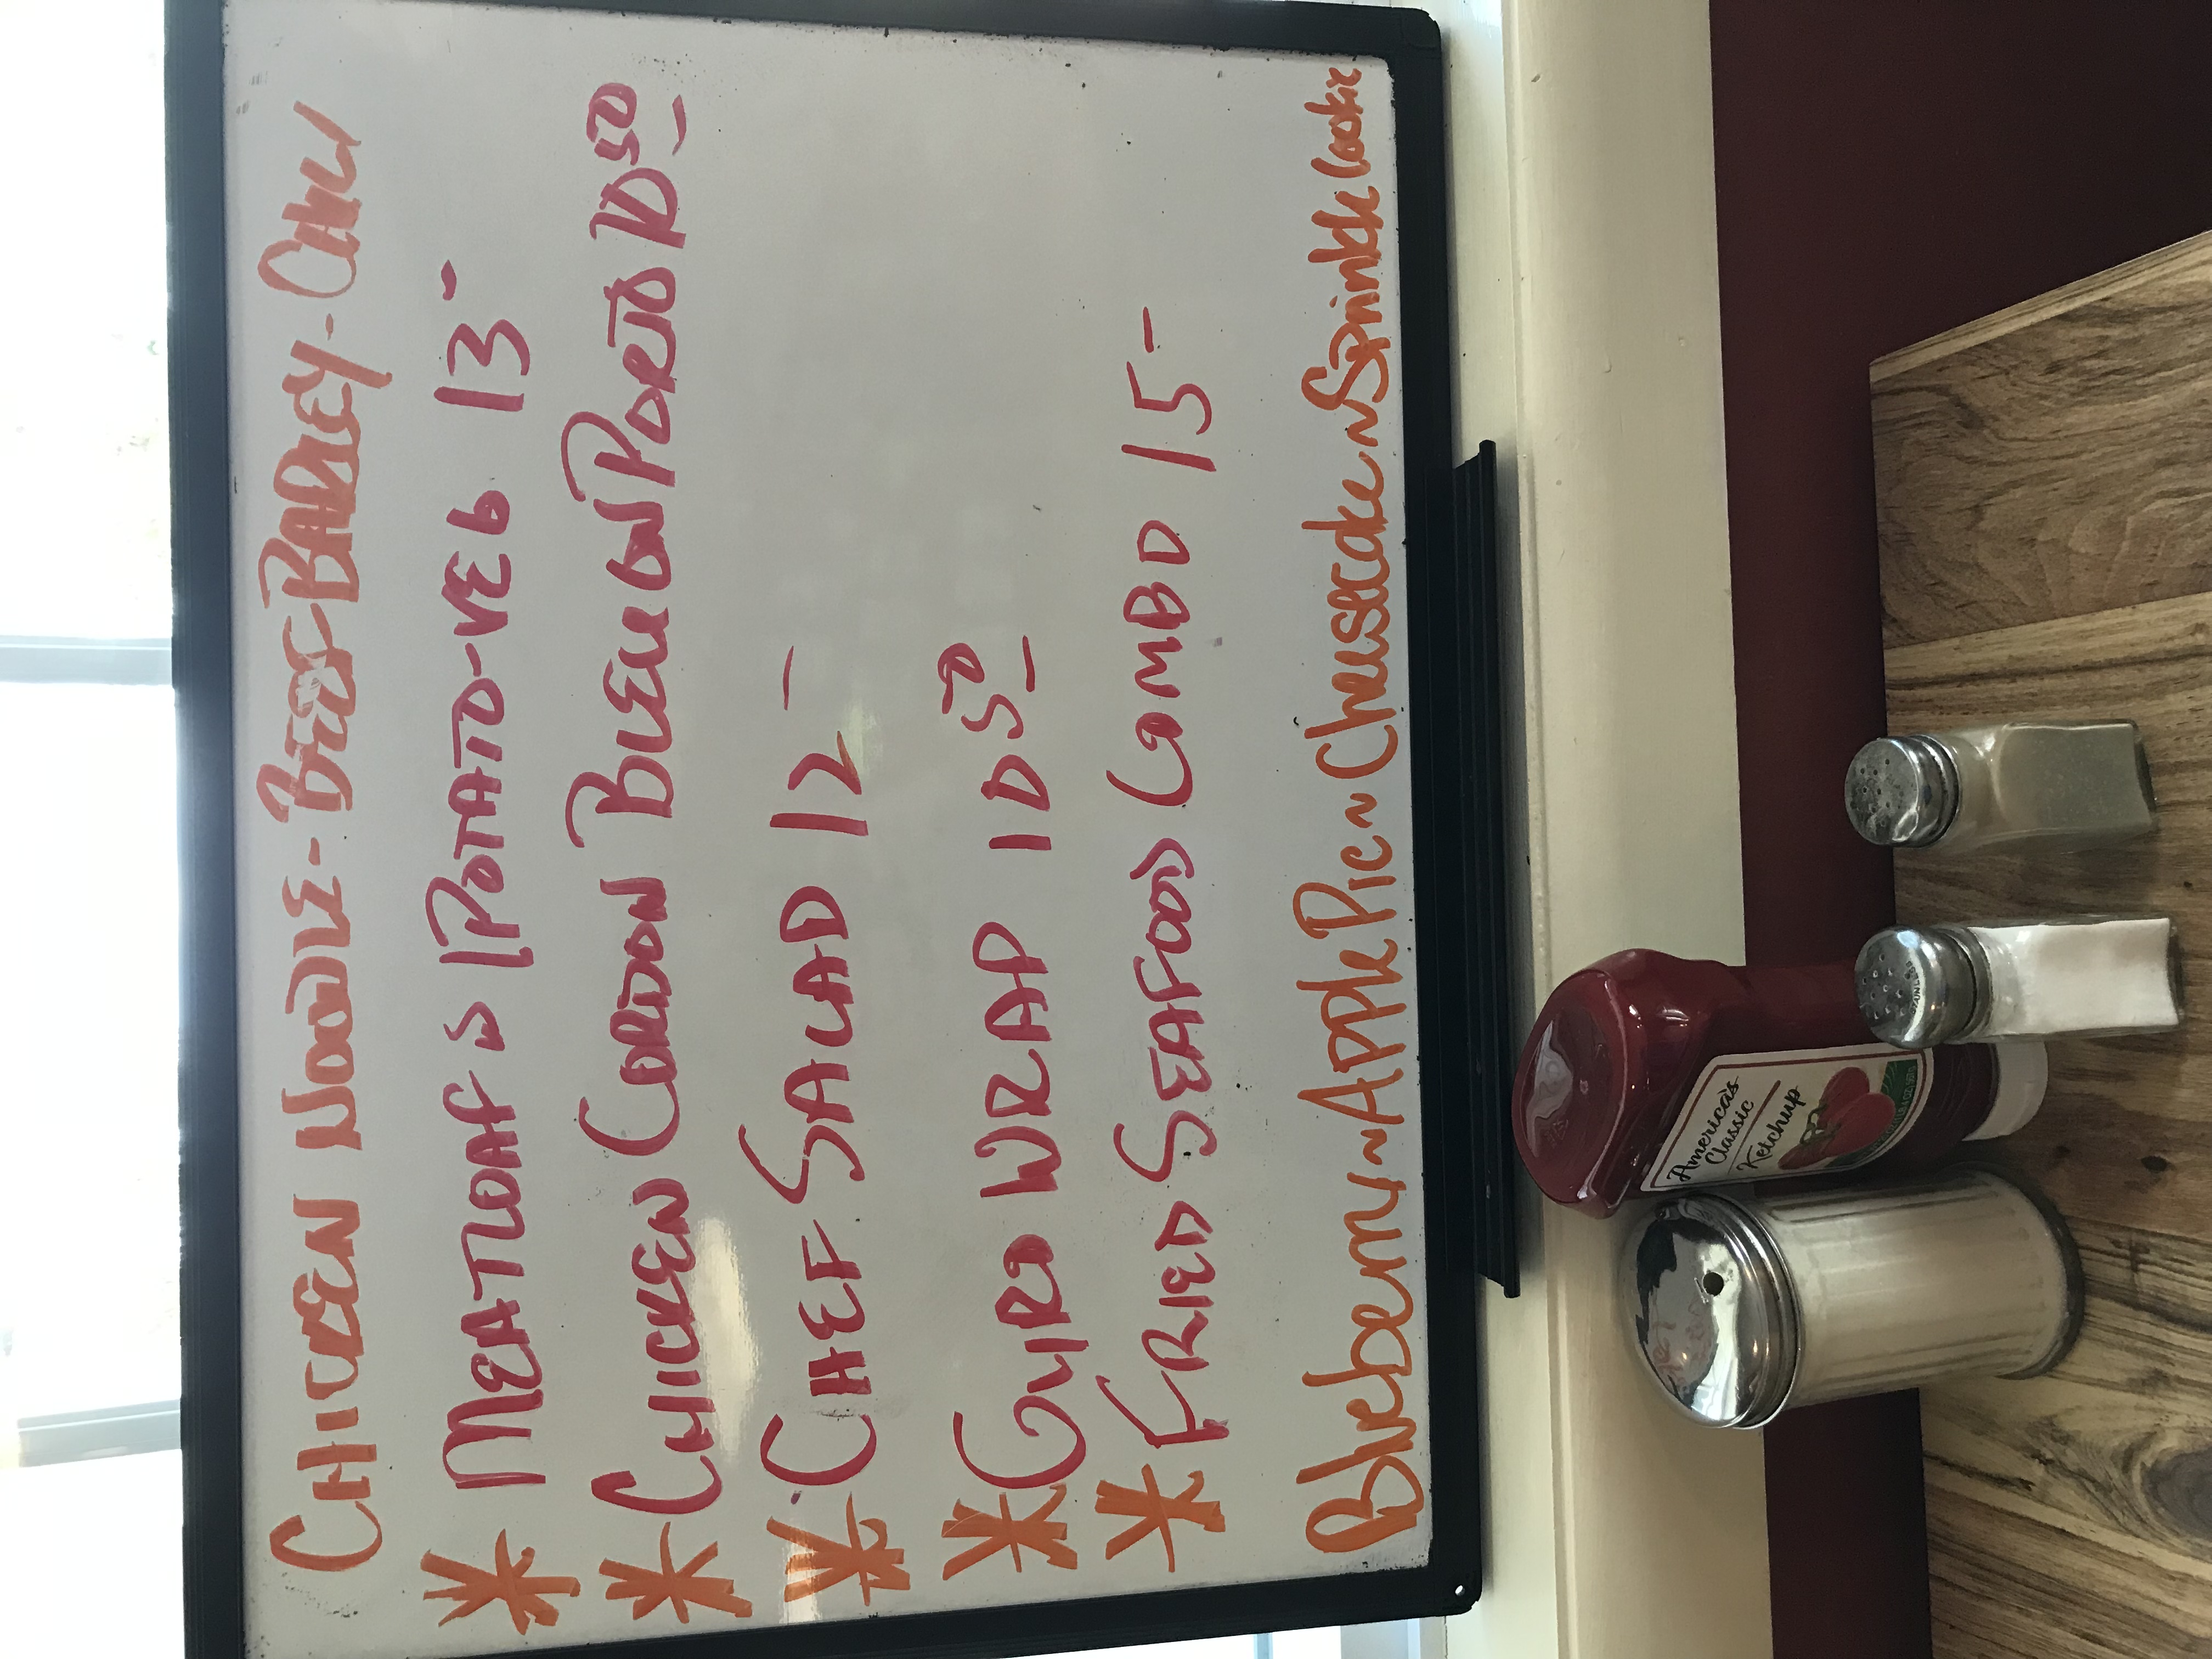 CHICKEN NOODLE - BEEF BARLEY - CHILI
* MEATLOAF S POTATO-VEG 13-
* CHICKEN CORDON BLEU ON PORTO 10 50
* CHEF SALAD 12-
* GYRO WRAP 10 50
* FRIED SEAFOOD COMBO 15-
Blueberry ~ Apple Pie ~ Cheesecake ~ Sprinkle Cookie
America's
Classic
Ketchup